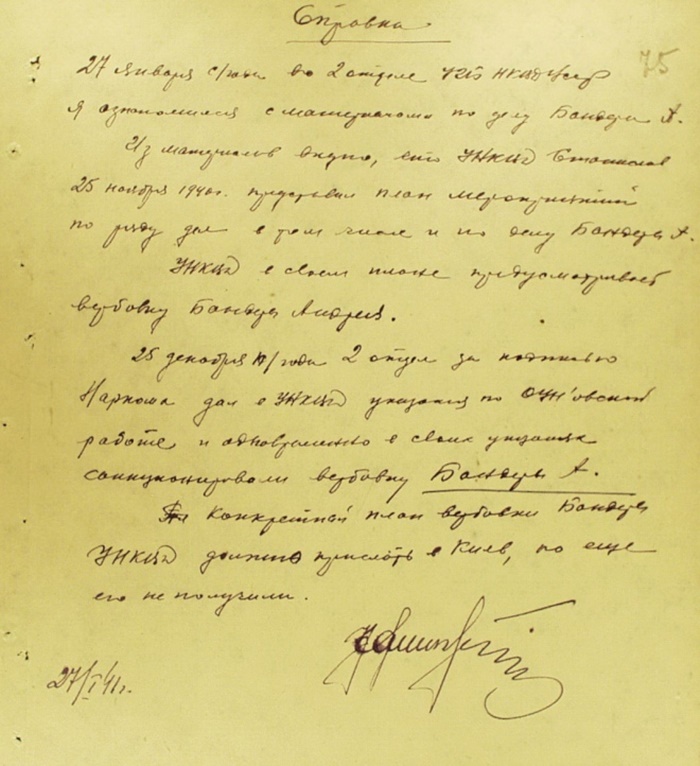 Справка
75
27 января с/года во 2 отделе УГБ НКВД УССР
я ознакомился с материалами по делу Бандеры А.
Из материалов видно, что УНКВД Станислав
25 ноября 1940г. представил план мероприятий
по ряду дел в том числе и по делу Бандеры А.
УНКВД в своем плане предусматривает
вербовку Бандеры Андрея.
25 декабря 40/года 2 отдел за подписью
Наркома дал в УНКВД указания по ОУН'овской
работе и одновременно в своих указаниях
санкционировали вербовку Бандеры А.
Конкретный план вербовки Бандеры
УНКВД должно прислать в Киев, но еще
его не получили.
27/I 41г.